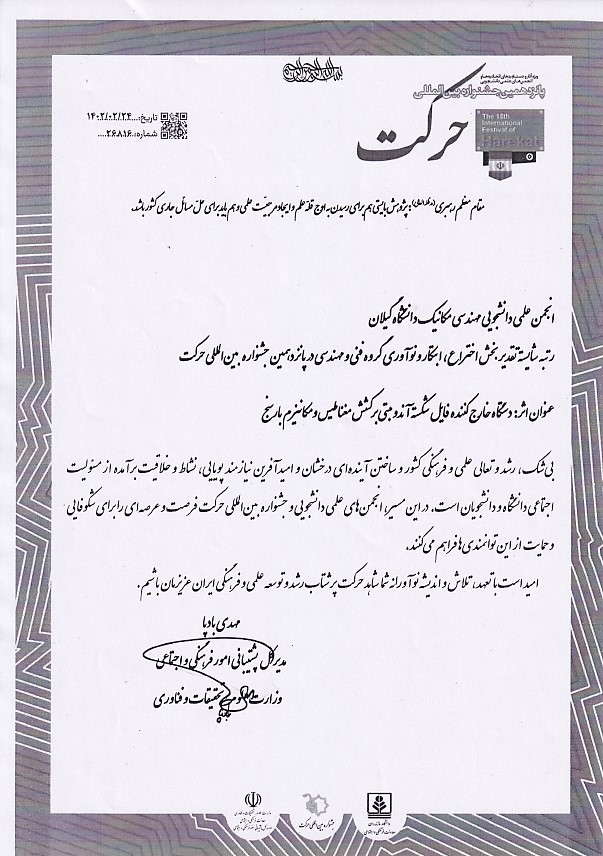 بسم الله الرحمن الرحیم
ویژه آثار و دستاوردهای اتحادیه‌ها و
انجمن‌های علمی دانشجویی
پانزدهمین جشنواره بین‌المللی
حرکت
The 15th
International
Festival of
Harekat
تاریخ:...۱۴۰۲/۰۲/۲۴
شماره:..۲۶۸۱۶....
مقام معظم رهبری (مدظله‌العالی): پژوهش بایستی هم برای رسیدن به اوج قله علم و ایجاد مرجعیّت علمی و هم باید برای حلّ مسائل جاری کشور باشد.
انجمن علمی دانشجویی مهندسی مکانیک دانشگاه گیلان
رتبه شایسته تقدیر بخش اختراع، ابتکار و نوآوری گروه فنی و مهندسی در پانزدهمین جشنواره بین‌المللی حرکت
عنوان اثر: دستگاه خارج کننده فایل شکسته آندو مبتنی بر کشش مغناطیس و مکانیزم بار سنج
بی‌شک، رشد و تعالی علمی و فرهنگی کشور و ساختن آینده‌ای درخشان و امیدآفرین نیازمند پویایی، نشاط و خلاقیت برآمده از مسئولیت
اجتماعی دانشگاه و دانشجویان است. در این مسیر، انجمن‌های علمی دانشجویی و جشنواره بین‌المللی حرکت فرصت و عرصه‌ای را برای شکوفایی
و حمایت از این توانمندی‌ها فراهم می‌کنند.
امید است با تعهد، تلاش و اندیشه نوآورانه شما شاهد حرکت پرشتاب رشد و توسعه علمی و فرهنگی ایران عزیزمان باشیم.
مهدی بادپا
مدیرکل پشتیبانی امور فرهنگی و اجتماعی
وزارت علوم، تحقیقات و فناوری
وزارت علوم، تحقیقات و فناوری
معاونت فرهنگی و اجتماعی
جشنواره بین‌المللی حرکت
دانشگاه مازندران
معاونت فرهنگی و اجتماعی